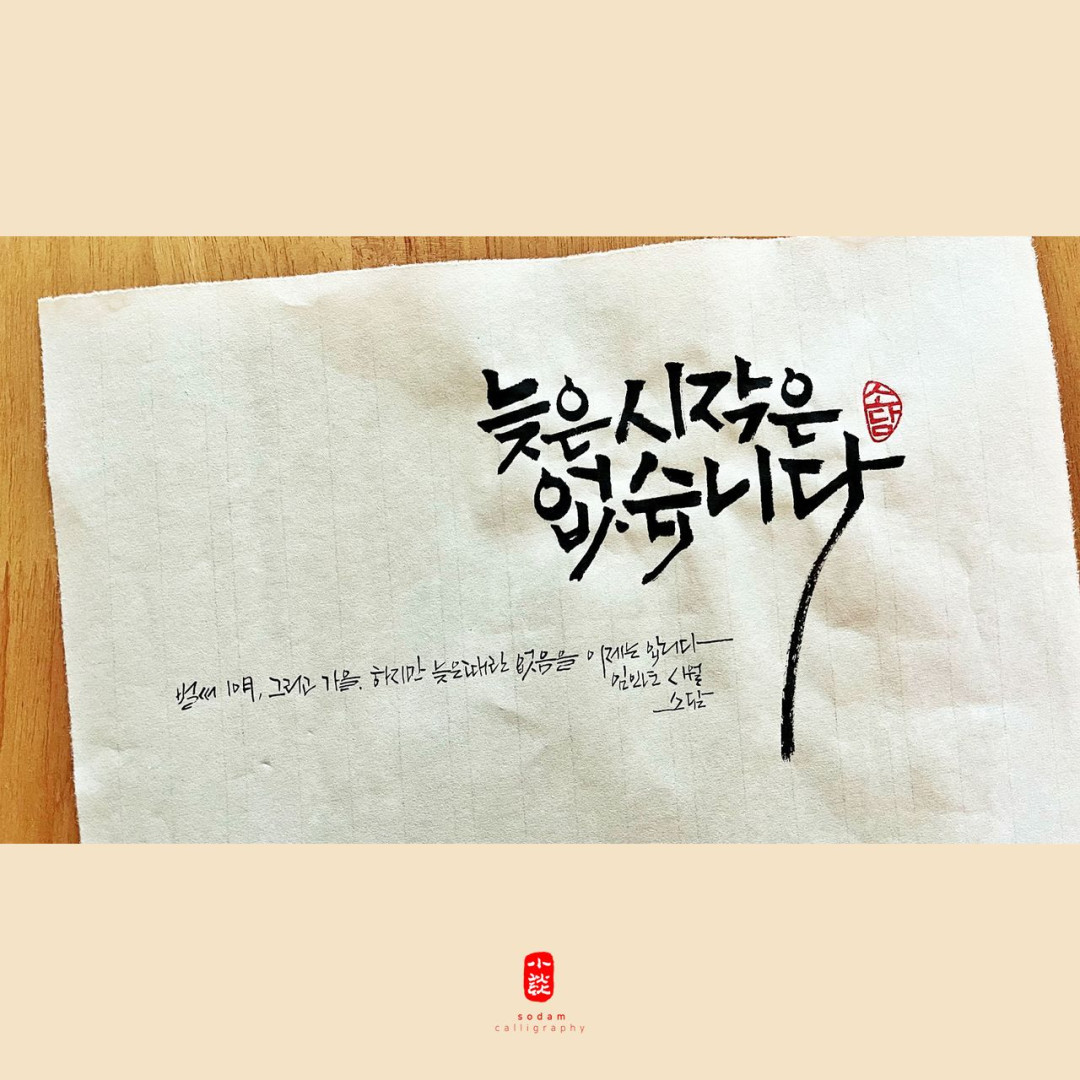 늦은 시작은
없습니다
소담
벌써 10月, 그리고 가을. 하지만 늦은때란 없음을 이제는 압니다
임인년 시월
소담
小
sodam
calligraphy